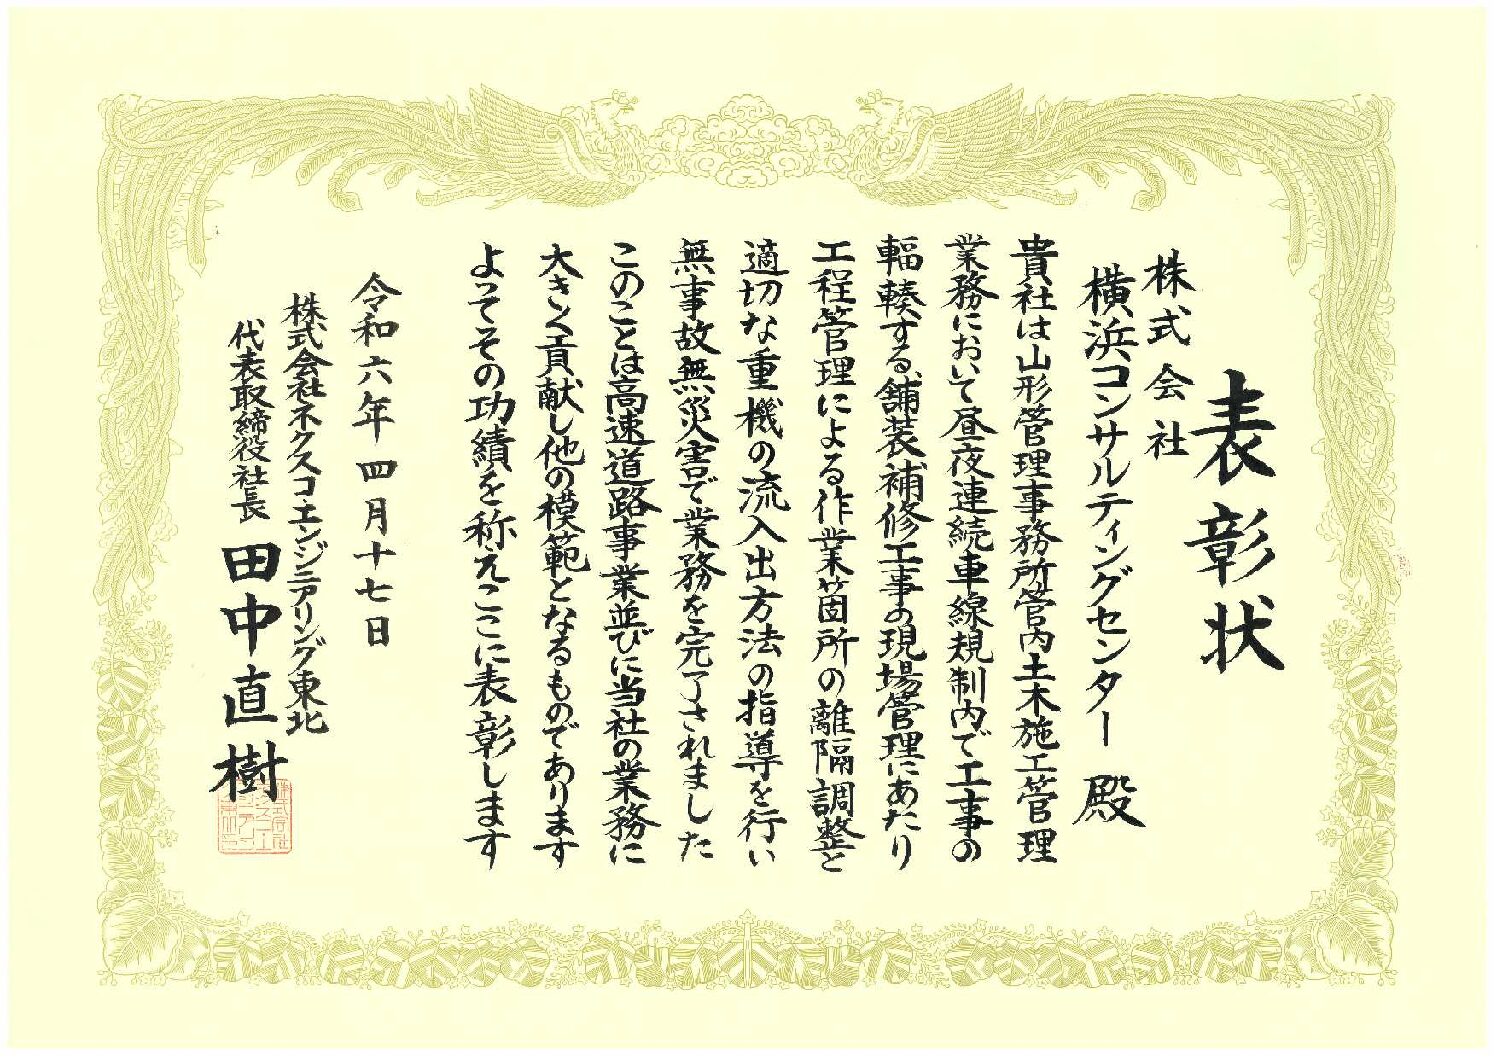 表彰状
株式会社
横浜コンサルティングセンター 殿
貴社は山形管理事務所管内土木施工管理
業務において昼夜連続車線規制内で工事の
輻輳する、舗装補修工事の現場管理にあたり
工程管理による作業箇所の離隔調整と
適切な重機の流入出方法の指導を行い
無事故無災害で業務を完了されました
このことは高速道路事業並びに当社の業務に
大きく貢献し他の模範となるものであります
よってその功績を称えここに表彰します
令和六年四月十七日
株式会社ネクスコエンジニアリング東北
代表取締役社長 田中直樹